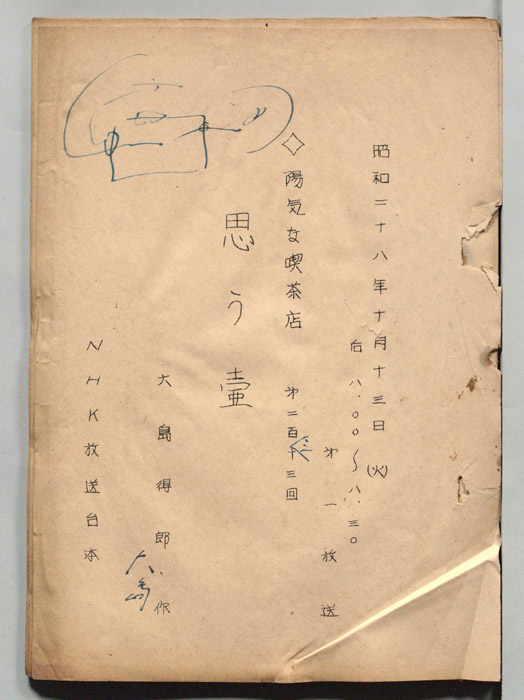 昭和二十八年十月十三日(火)
后 八.〇〇〜八.三〇
第一放送
◇陽気な喫茶店 第二百十三回
思う壷
大島得郎 作
大島
NHK放送台本